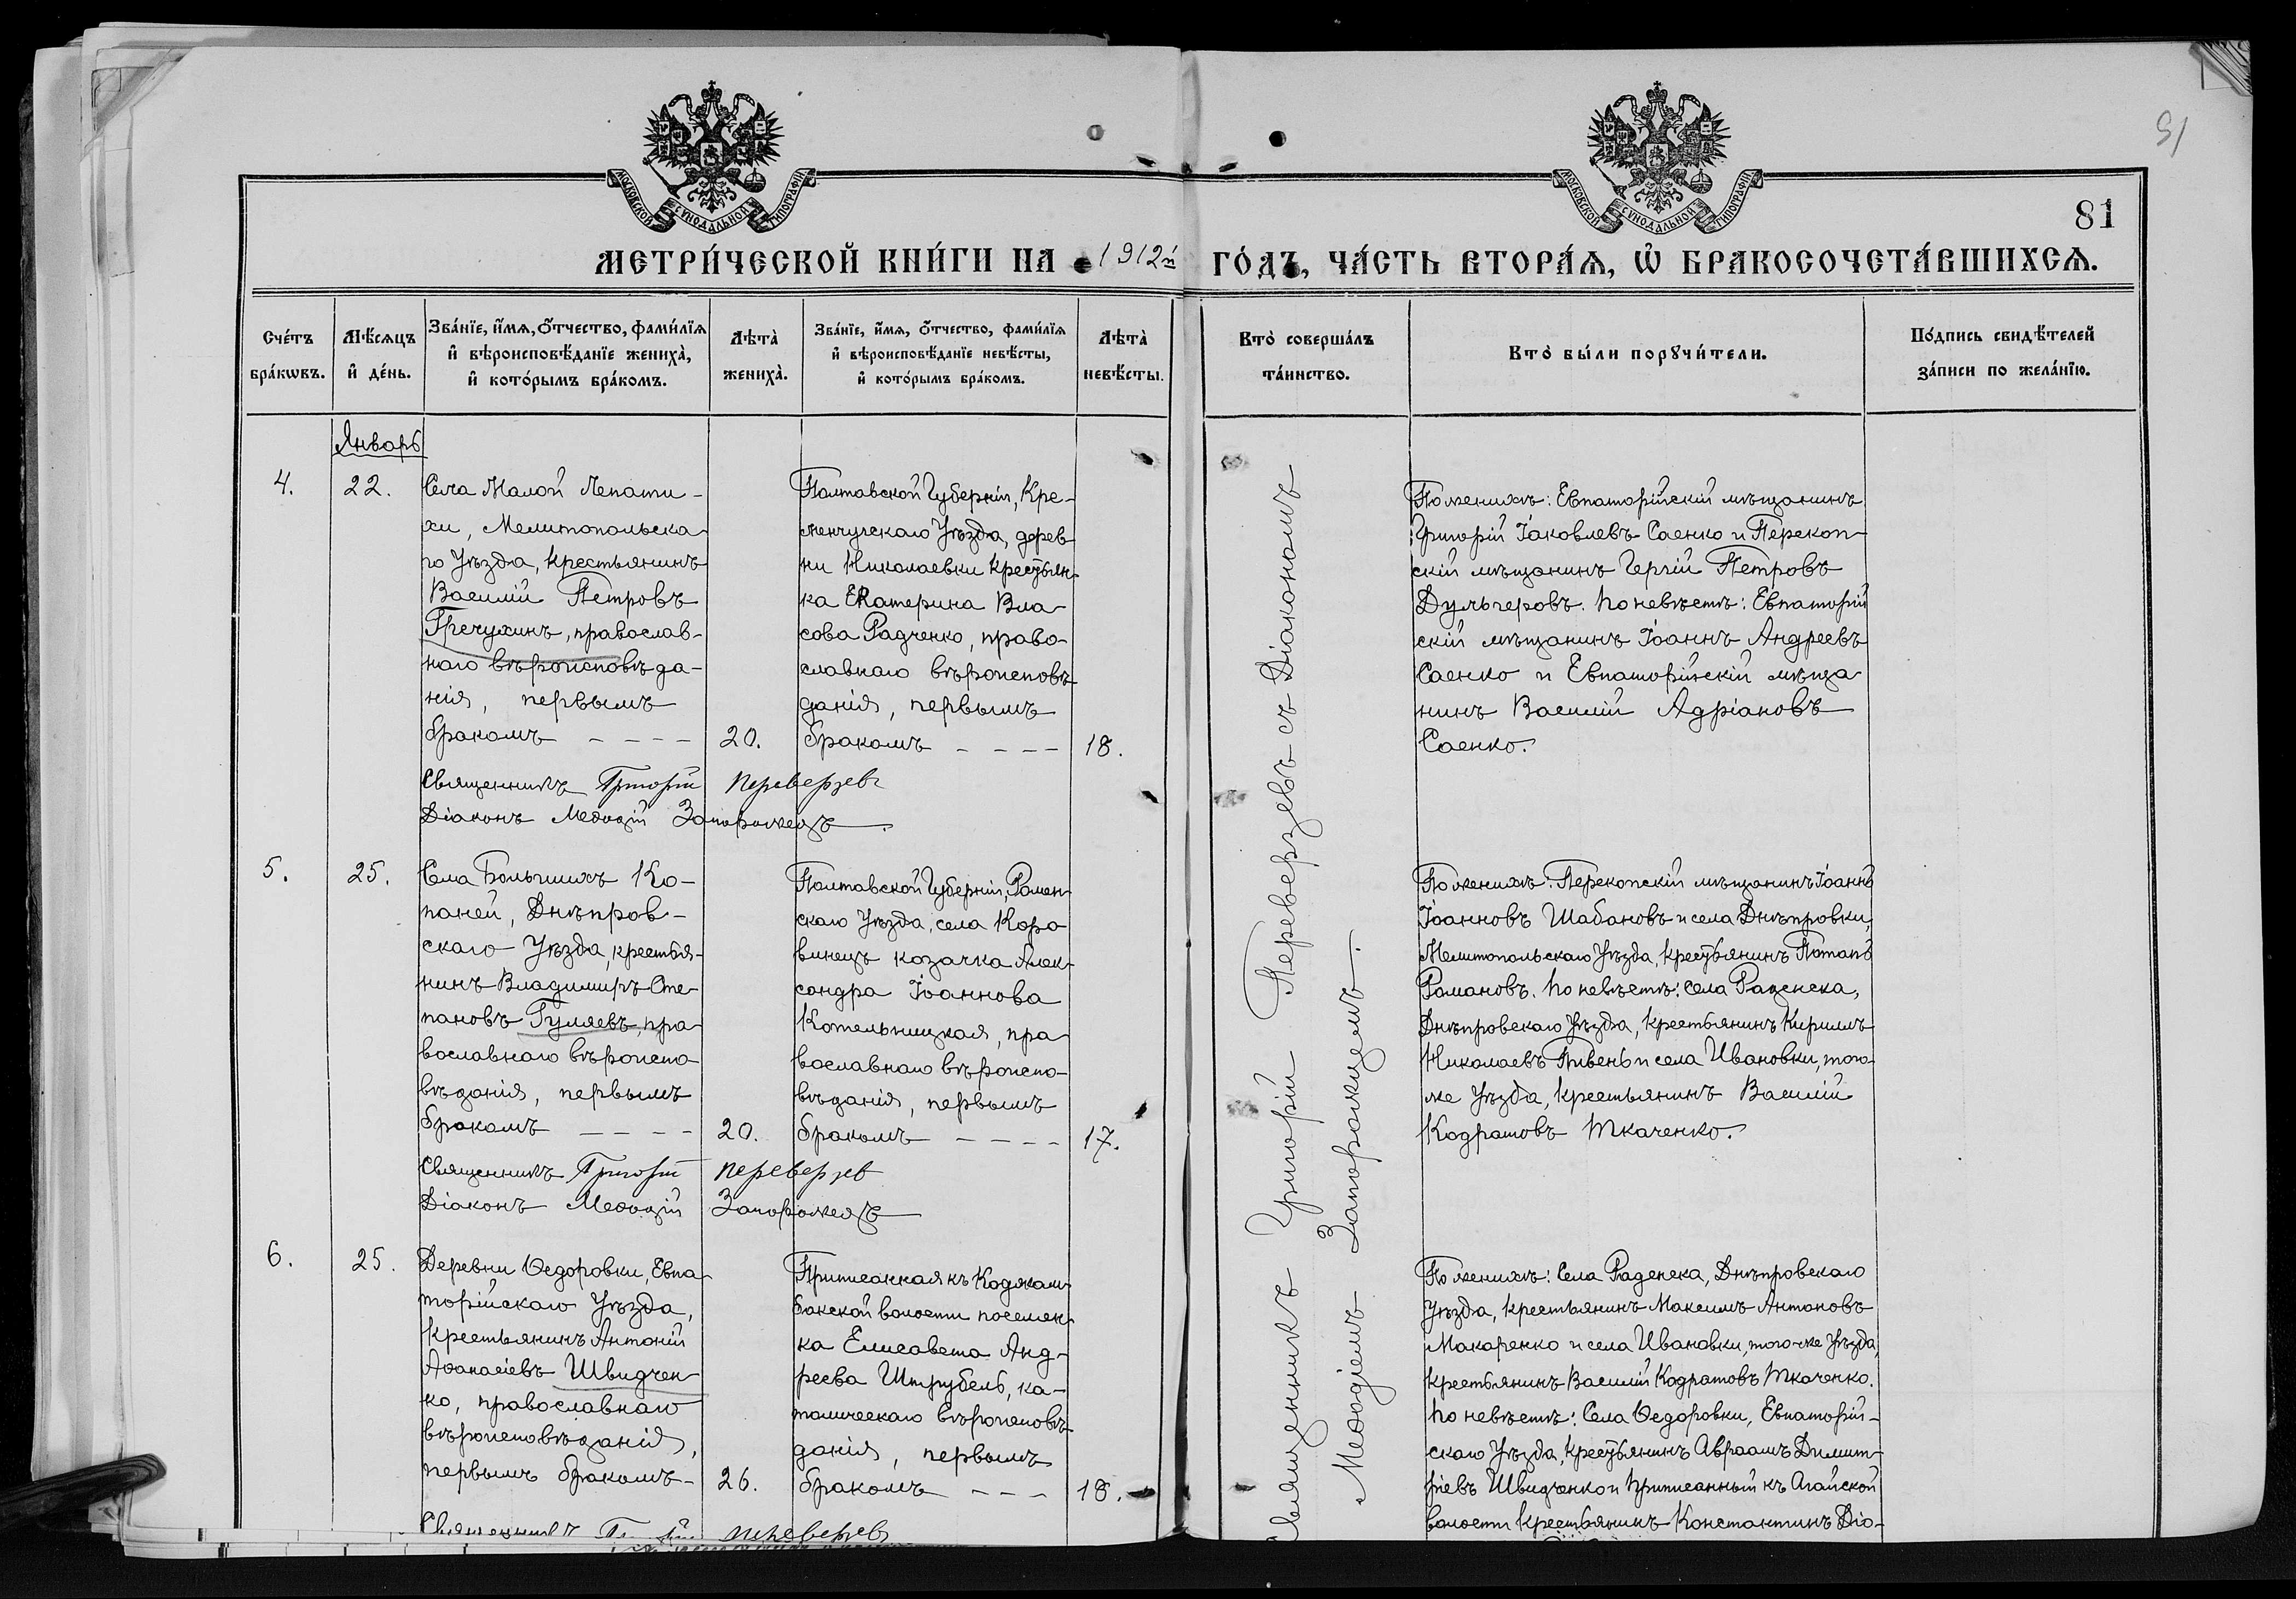 91
МОСКОВСКОЙ СѴНОДАЛЬНОЙ ТИПОГРАФІИ
МОСКОВСКОЙ СѴНОДАЛЬНОЙ ТИПОГРАФІИ
81
МЕТРИ́ЧЕСКОЙ КНИ́ГИ НА 1912й ГО́ДЪ, ЧА́СТЬ ВТОРА́Ѧ, Ѡ БРАКОСОЧЕТА́ВШИХСѦ.
Сче́тъ бра́кѡвъ.
Мѣ́сяцъ и де́нь.
Зва́нїе, и́мѧ, о́тчество, фами́лїѧ
и вѣроисповѣ́данїе жениха̀,
и кото́рымъ бра́комъ.
Лѣта̀ жениха̀.
Зва́нїе, и́мѧ, о́тчество, фами́лїѧ
и вѣроисповѣ́данїе невѣ́сты,
и кото́рымъ бра́комъ.
Лѣта̀ невѣ́сты.
Кто̀ соверша́лъ
та́инство.
Кто̀ бы́ли порꙋчи́тели.
По́дпись свидѣ́телей
за́писи по жела́нїю.
Январь
4.
22.
Села Малой Лепати-
хи, Мелитопольска-
го Уѣзда, крестьянинъ
Василій Петровъ
Гречухинъ, православ-
наго вѣроисповѣда-
нія, первымъ
бракомъ - - - -
20.
Полтавской Губерніи, Кре-
менчугскаго Уѣзда, дерев-
ни Николаевки крестьян-
ка Екатерина Вла-
сова Радченко, право-
славнаго вѣроисповѣ-
данія, первымъ
бракомъ - - - -
18.
Священникъ Григорій Переверзевъ
Діаконъ Меѳодій Запорожецъ
По женихѣ: Евпаторійскій мѣщанинъ
Григорій Іаковлевъ Саенко и Перекоп-
скій мѣщанинъ Гергій Петровъ
Дульгеровъ. По невѣстѣ: Евпаторій
скій мѣщанинъ Іоаннъ Андреевъ
Саенко и Евпаторійскій мѣща-
нинъ Василій Адріановъ
Саенко.
Священникъ Григорій Переверзевъ съ Діакономъ
Меѳодіемъ Запорожцемъ.
5.
25.
Села Большихъ Ко-
паней, Днѣпров-
скаго Уѣзда, крестья-
нинъ Владимиръ Сте-
пановъ Гуляевъ, пра-
вославнаго вѣроиспо
вѣданія, первымъ
бракомъ - - - -
20.
Полтавской Губерніи, Ромен-
скаго Уѣзда, села Коро
винецъ козачка Алек-
сандра Іоаннова
Котельницкая, пра-
вославнаго вѣроиспо-
вѣданія, первымъ
бракомъ - - - -
17.
Священникъ Григорій Переверзев
Діаконъ Меѳодій Запорожецъ
По женихѣ: Перекопскій мѣщанинъ Іоаннъ
Іоанновъ Шабановъ и села Днѣпровки,
Мелитопольскаго Уѣзда, крестьянинъ Потапъ
Романовъ. По невѣстѣ: села Раденска,
Днѣпровскаго Уѣзда, крестьянинъ Кириллъ
Николаевъ Пивень и села Ивановки, того-
же Уѣзда, крестьянинъ Василій
Кодратовъ Ткаченко.
6.
25.
Деревни Ѳедоровки, Евпа-
торійскаго Уѣзда,
крестьянинъ Антоній
Аѳанасіевъ Швидчен-
ко, православнаго
вѣроисповѣданія,
первымъ бракомъ-
26.
Приписанная къ Коджам-
бакской волости поселян-
ка Елисавета Анд-
реева Штрубель, ка-
толическаго вѣроисповѣ-
данія, первымъ
бракомъ - - -
18.
Священникъ Григорій Переверзевъ
По женихѣ: Села Раденска, Днѣпровскаго
Уѣзда, крестьянинъ Максимъ Антоновъ
Макаренко и села Ивановки, того-же Уѣзда,
крестьянинъ Василій Кодратовъ Ткаченко.
По невѣстѣ: Села Ѳедоровки, Евпаторій-
скаго Уѣзда, крестьянинъ Авраамъ Димит-
ріевъ Швидченко и приписанный къ Агайской
волости крестьянинъ Константинъ Діо-